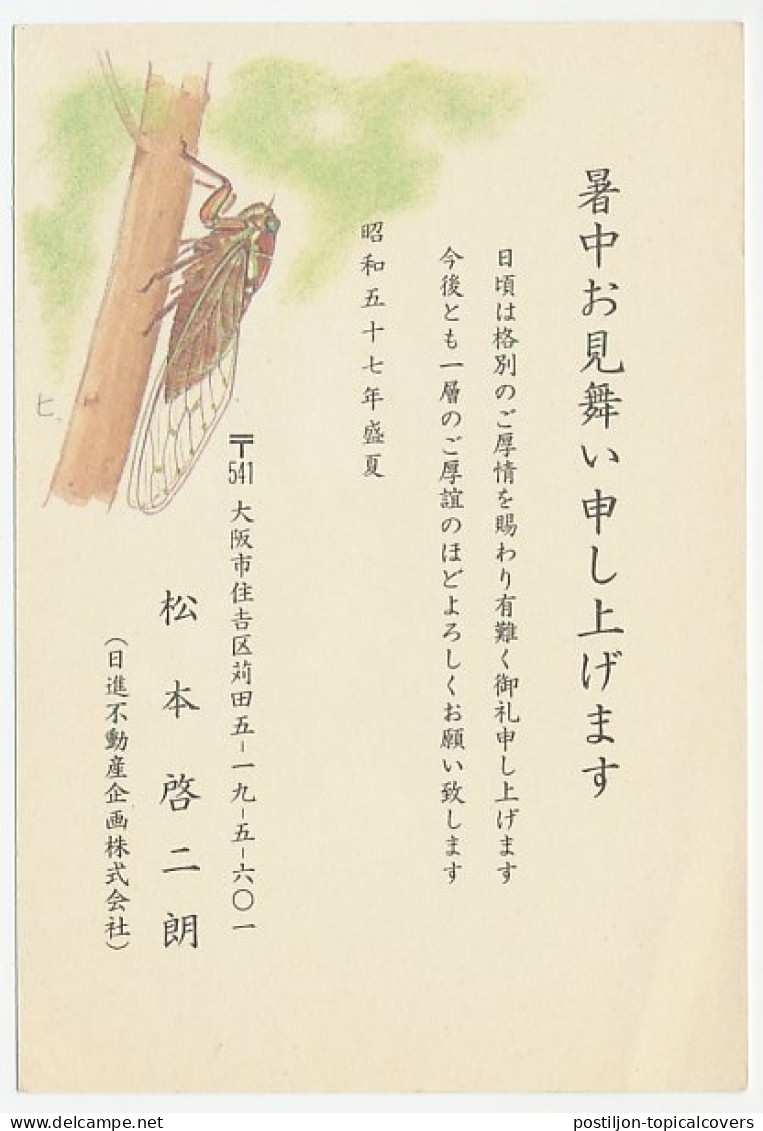 暑中お見舞い申し上げます
日頃は格別のご厚情を賜わり有難く御礼申し上げます
今後とも一層のご厚誼のほどよろしくお願い致します
昭和五十七年盛夏
〒541 大阪市住吉区苅田五-一九-五-六〇一
松本啓二朗
(日進不動産企画株式会社)
ヒ、
postiljon-topicalcovers